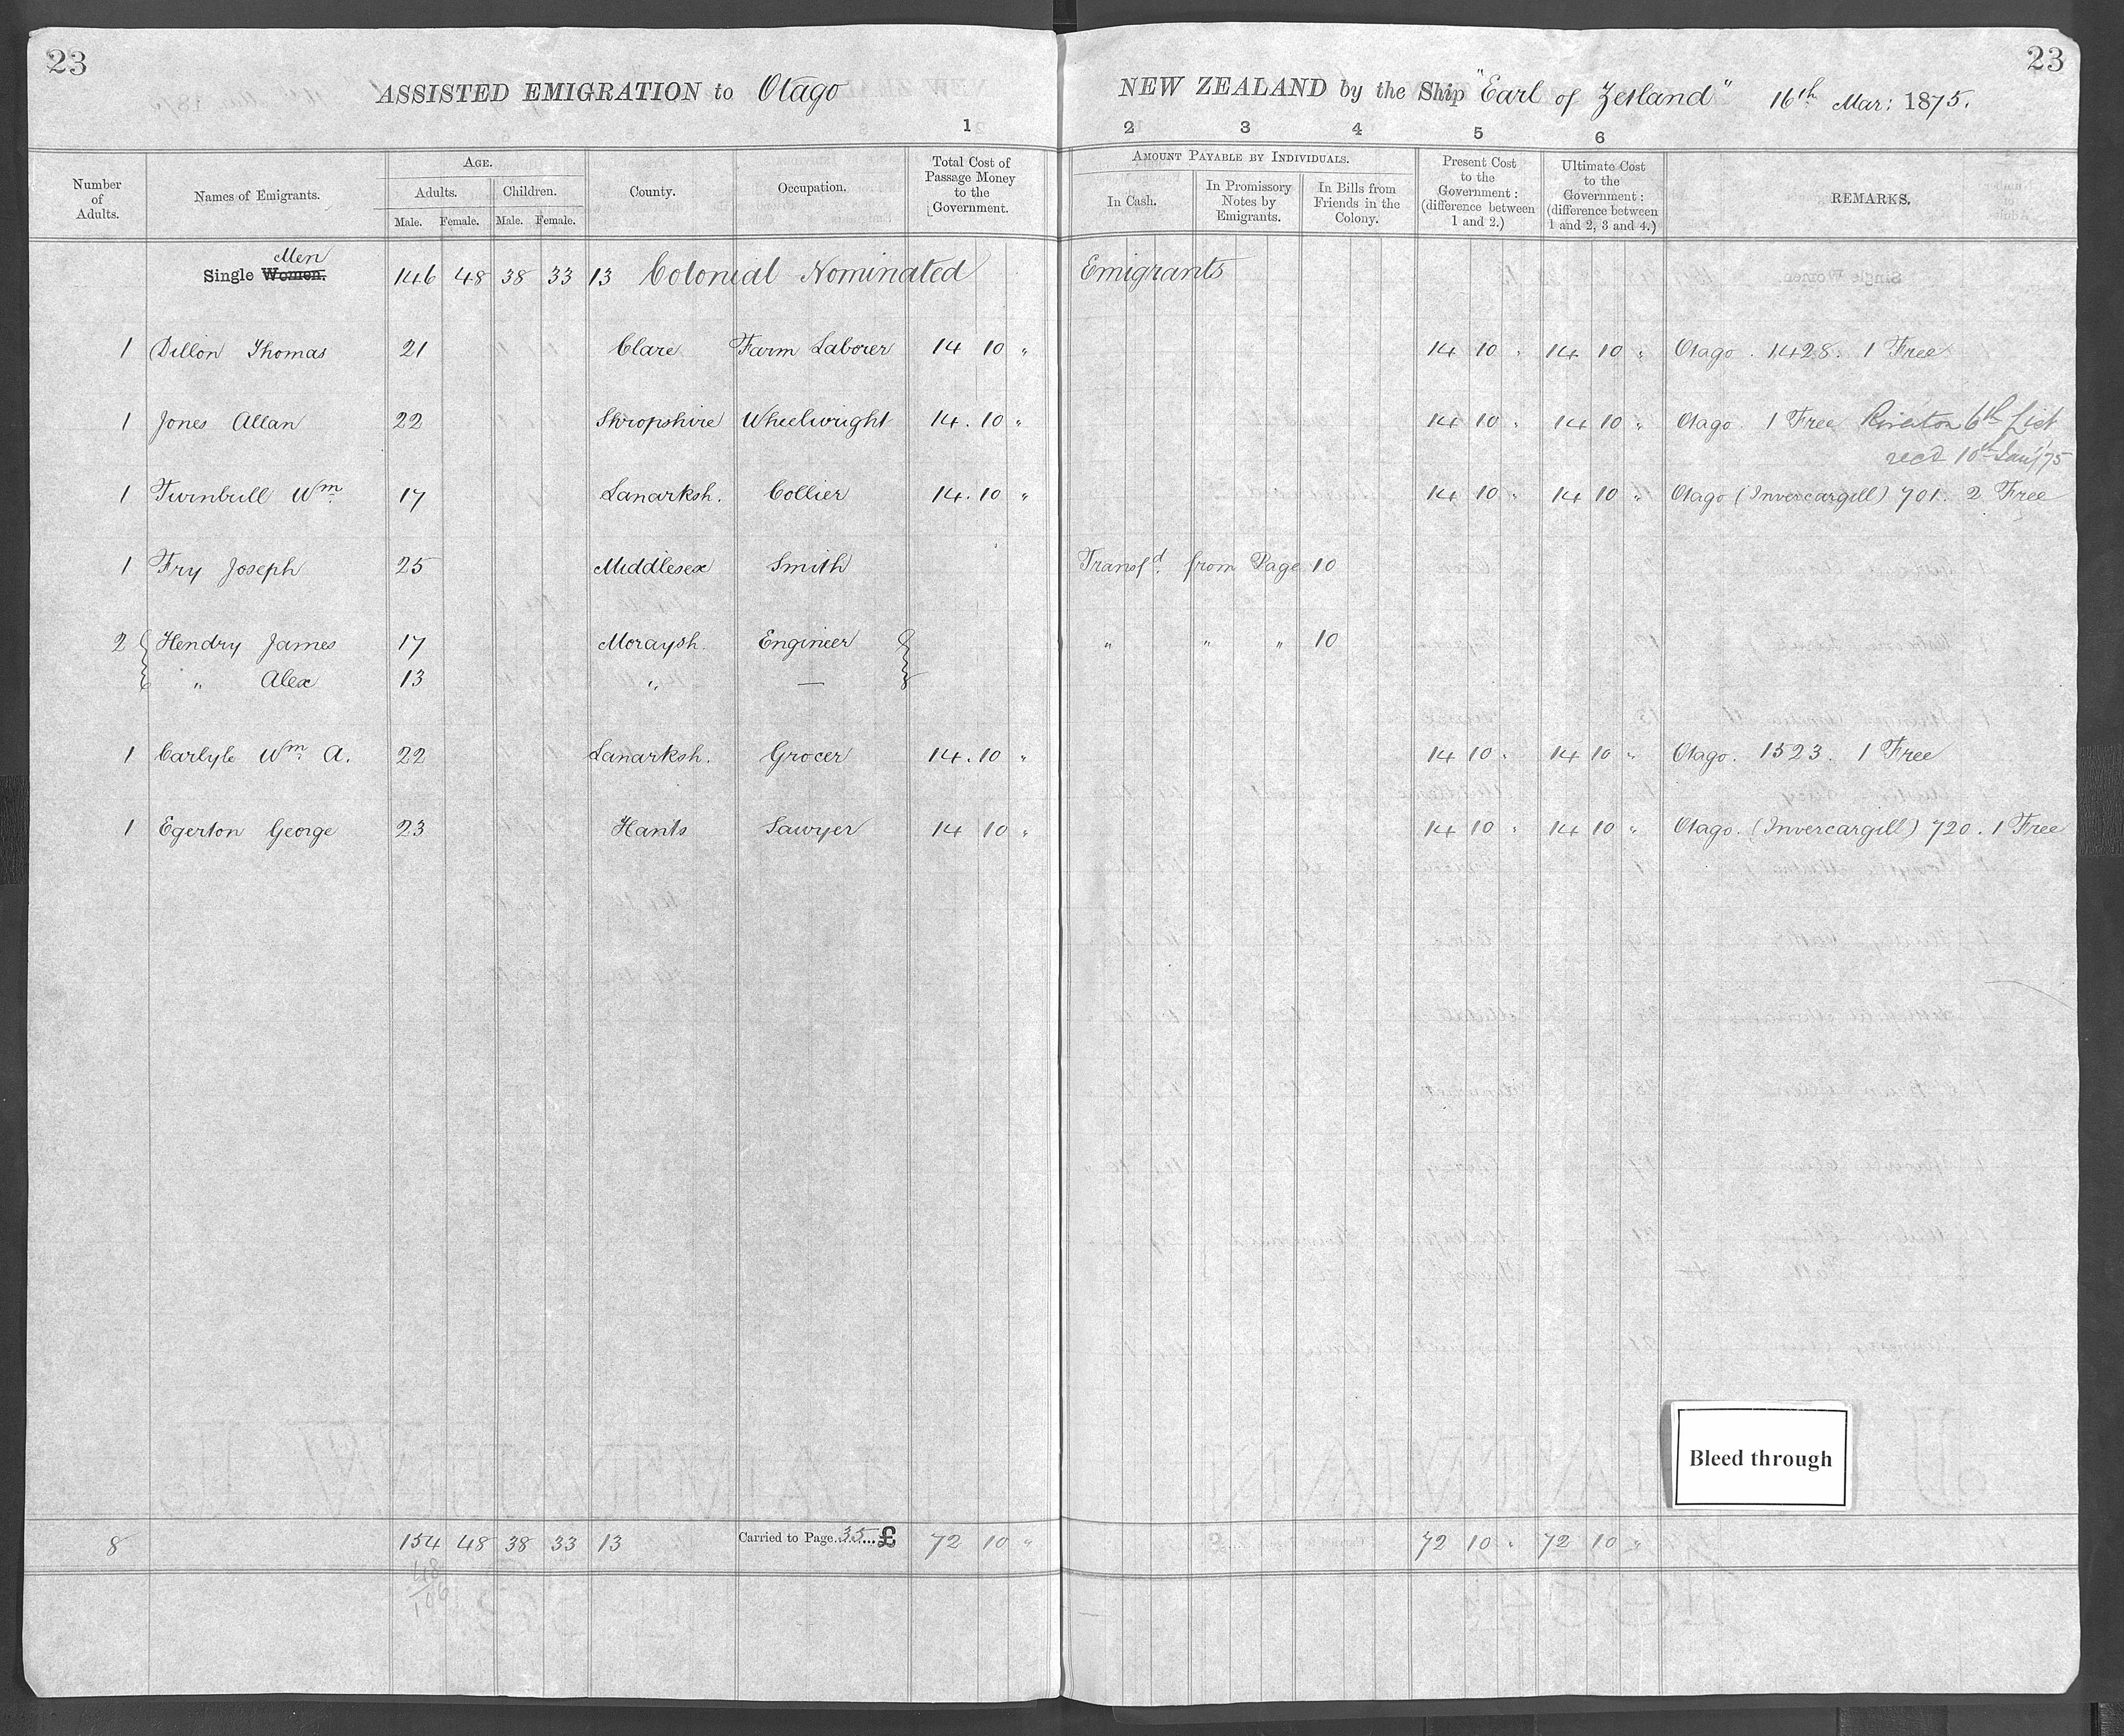 23 23
ASSISTED EMIGRATION to Otago NEW ZEALAND by the Ship "Earl of Zetland" 16th Mar: 1875.
1 2 3 4 5 6
Number of Adults. Names of Emigrants. AGE. Adults. Male. Female. Children. Male. Female. County. Occupation. Total Cost of Passage Money to the Government. AMOUNT PAYABLE BY INDIVIDUALS. In Cash. In Promissory Notes by Emigrants. In Bills from Friends in the Colony. Present Cost to the Government: (difference between 1 and 2.) Ultimate Cost to the Government: (difference between 1 and 2, 3 and 4.) REMARKS.
Men
Single Women. 146 48 38 33 13 Colonial Nominated Emigrants
1 Dillon Thomas 21 Clare Farm Laborer 14 10 " 14 10 " 14 10 " Otago. 1428. 1 Free
1 Jones Allan 22 Shropshire Wheelwright 14. 10 " 14 10 " 14 10 " Otago. 1 Free Riverton 6th List
recd 10th Jany 75
1 Turnbull Wm 17 Lanarksh. Collier 14. 10 " 14 10 " 14 10 " Otago (Invercargill) 701. 2 Free
1 Fry Joseph 25 Middlesex Smith Transfd. from Page 10
2 Hendry James 17 Moraysh. Engineer " " " 10
" Alex 13 " —
1 Carlyle Wm. A. 22 Lanarksh. Grocer 14. 10 " 14 10 " 14 10 " Otago. 1523. 1 Free
1 Egerton George 23 Hants Sawyer 14 10 " 14 10 " 14 10 " Otago. (Invercargill) 720. 1 Free
Bleed through
8 154 48 38 33 13 Carried to Page 35 £ 72 10 " 72 10 " 72 10 "
48
106